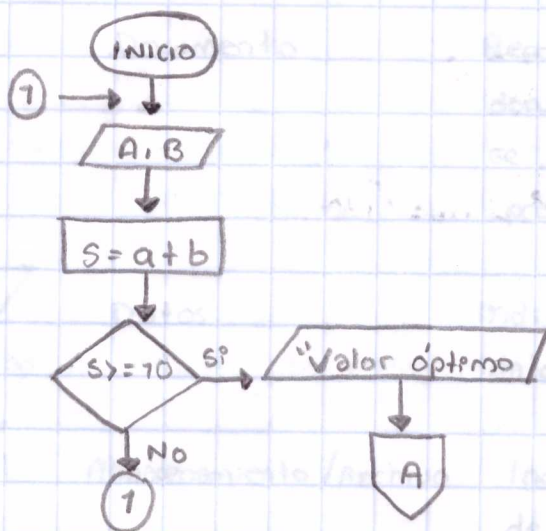 INICIO
1
A, B
S = a + b
S >= 10
Si
"Valor óptimo
No
1
A